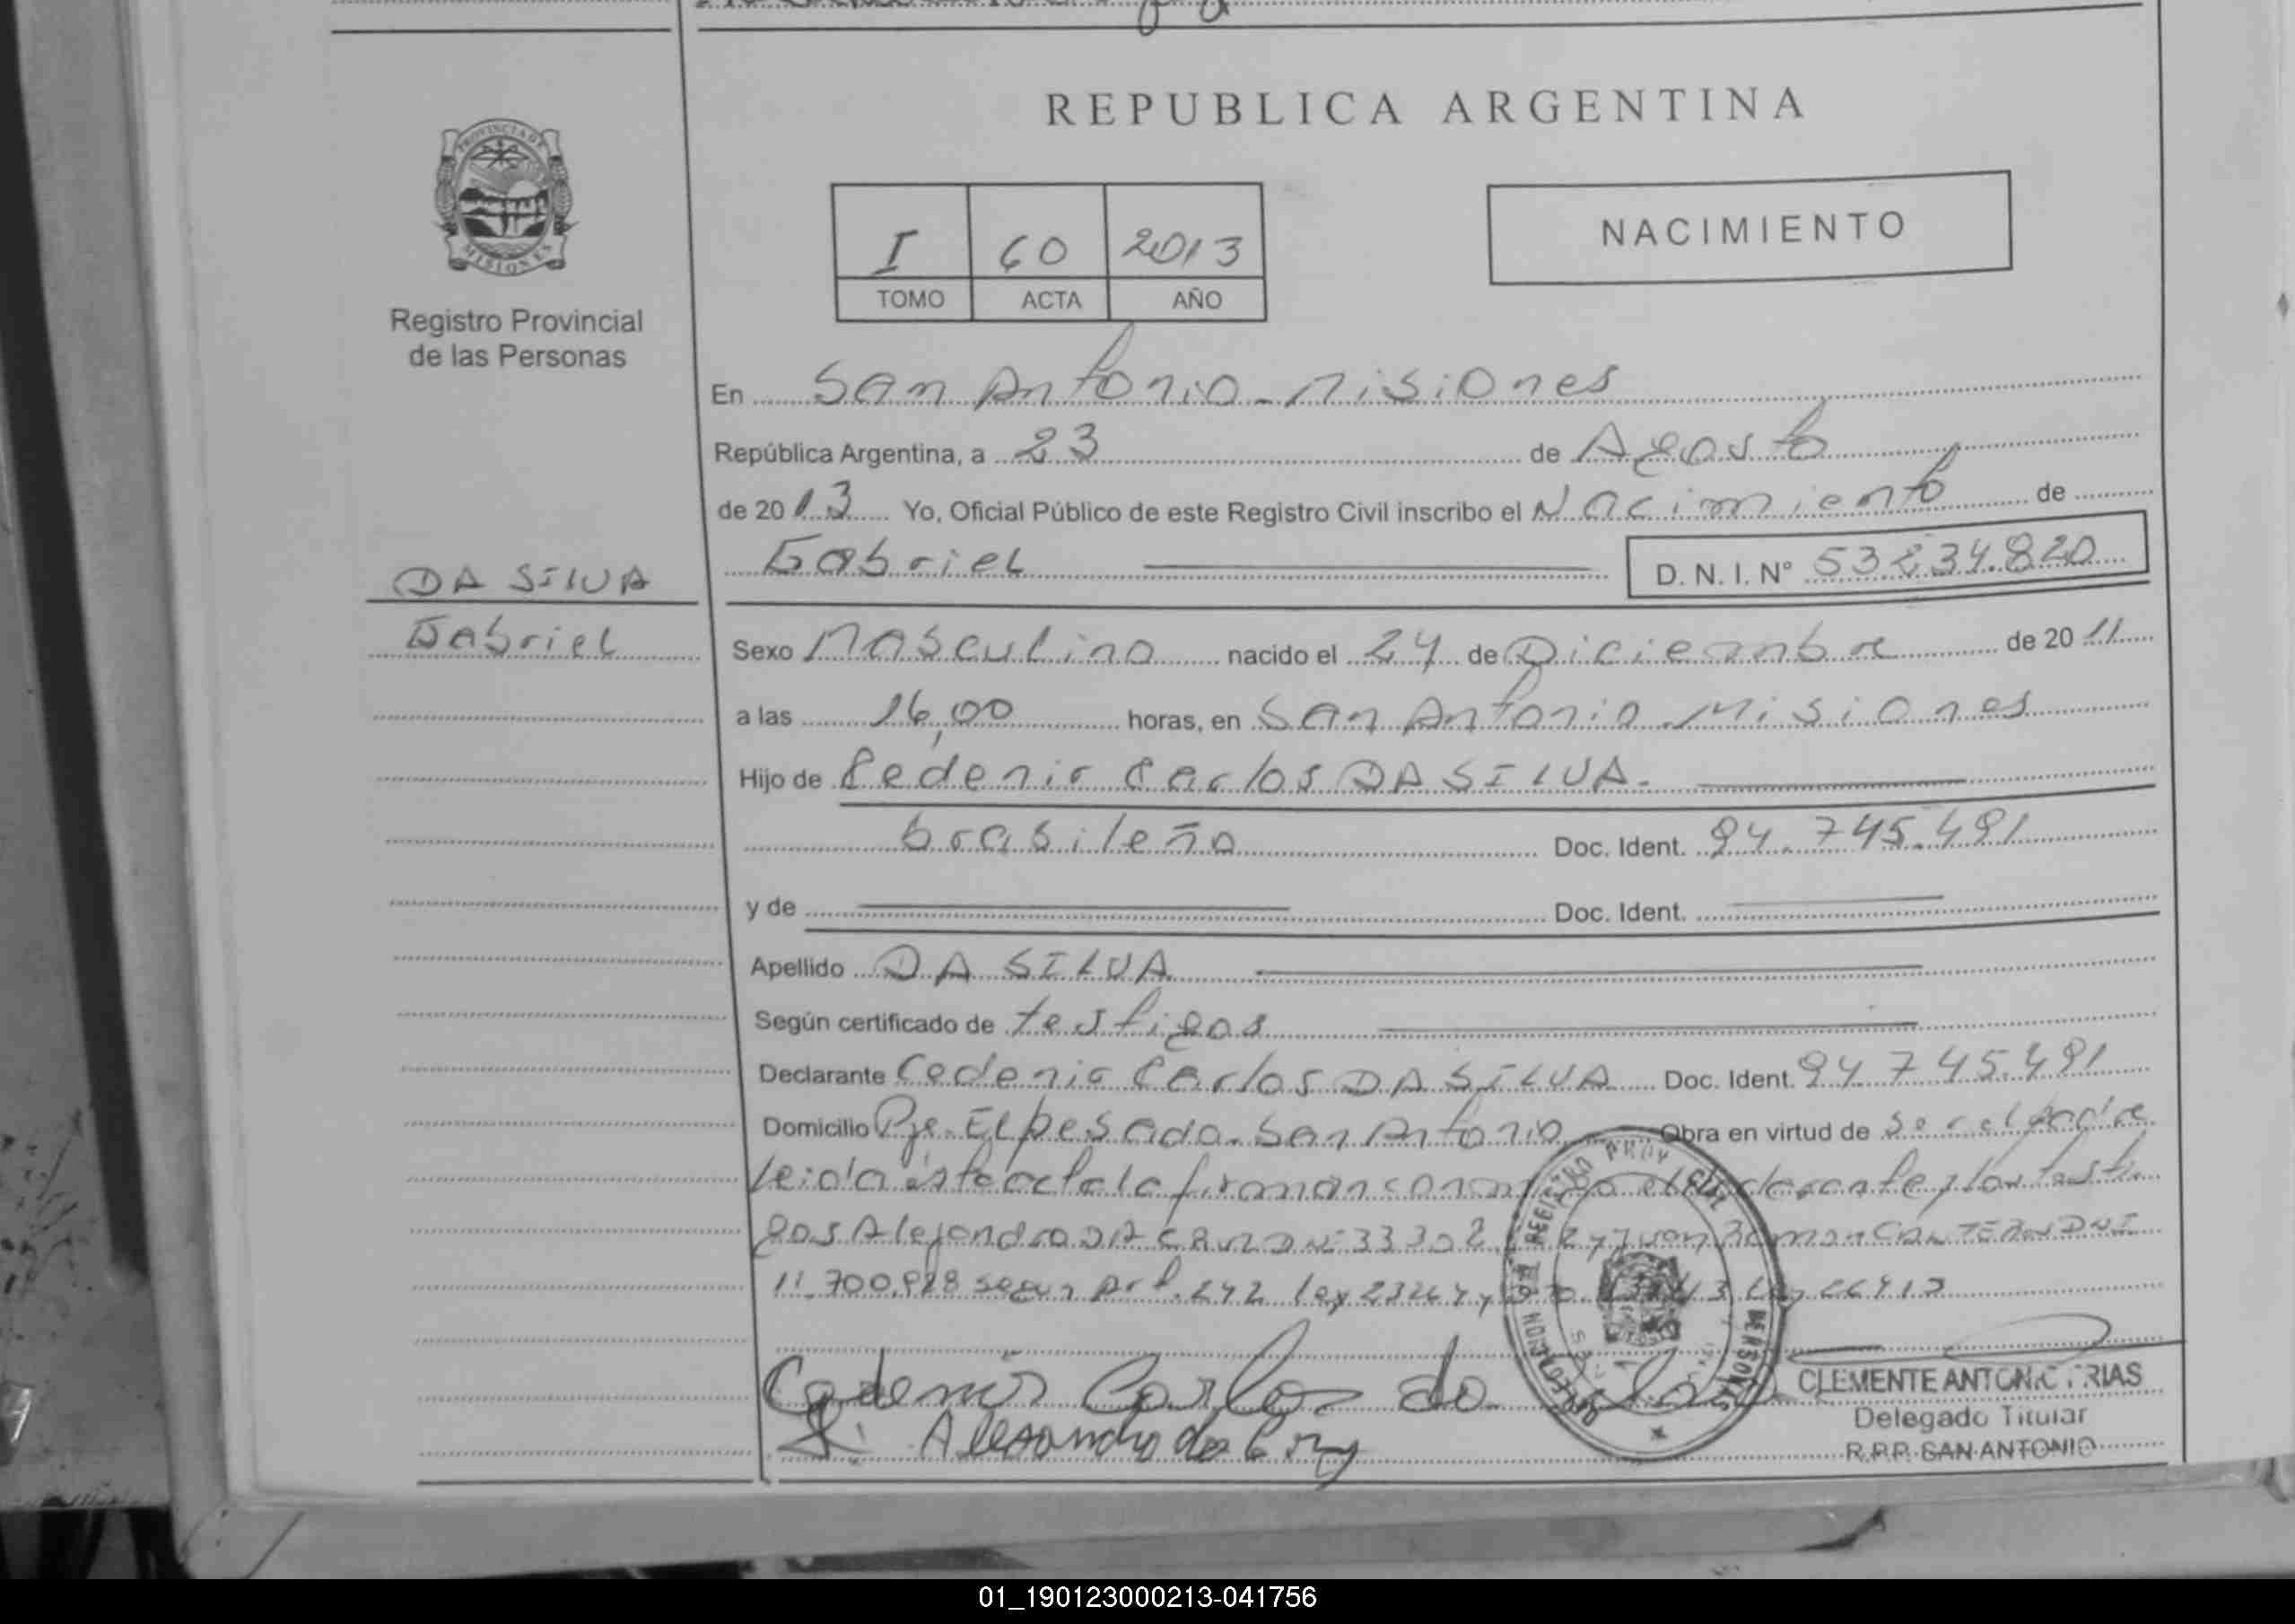 REPUBLICA ARGENTINA
PROVINCIA DE
MISIONES
Registro Provincial
de las Personas
I 60 2013
TOMO ACTA AÑO
NACIMIENTO
En San Antonio - Misiones
República Argentina, a 23 de Agosto
de 2013 Yo, Oficial Público de este Registro Civil inscribo el Nacimiento de
Gabriel D. N. I. Nº 53234.820
DA SILVA
Gabriel
Sexo Masculino nacido el 24 de Diciembre de 2011
a las 16,00 horas, en San Antonio. Misiones
Hijo de Carlos DA SILVA.
brasileño Doc. Ident. 94.745.491
y de Doc. Ident.
Apellido DA SILVA
Según certificado de testigos
Declarante Cedenir Carlos DA SILVA Doc. Ident. 94 745.491
Domicilio Pje. El pesado. San Antonio Obra en virtud de ser el padre
leida esta acta la firman con el y los testi
gos Alejandro DA CRUZ y Juan Ramon DNI
segun Art. 242 ley
Carlos da
Alesandro da Cruz
CLEMENTE ANTONIO FRIAS
Delegado Titular
R.P.P. SAN ANTONIO
01_190123000213-041756